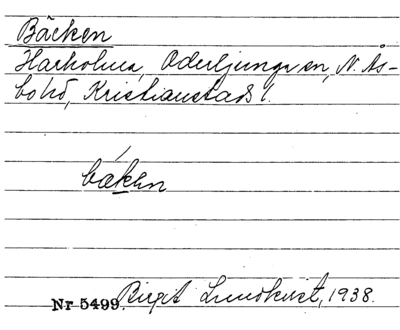 Bäcken
Harholma, Oderljunga sn, N. Ås-
bo hd, Kristianstads l.
báken
Nr 5499. Birgit Lundkvist, 1938.